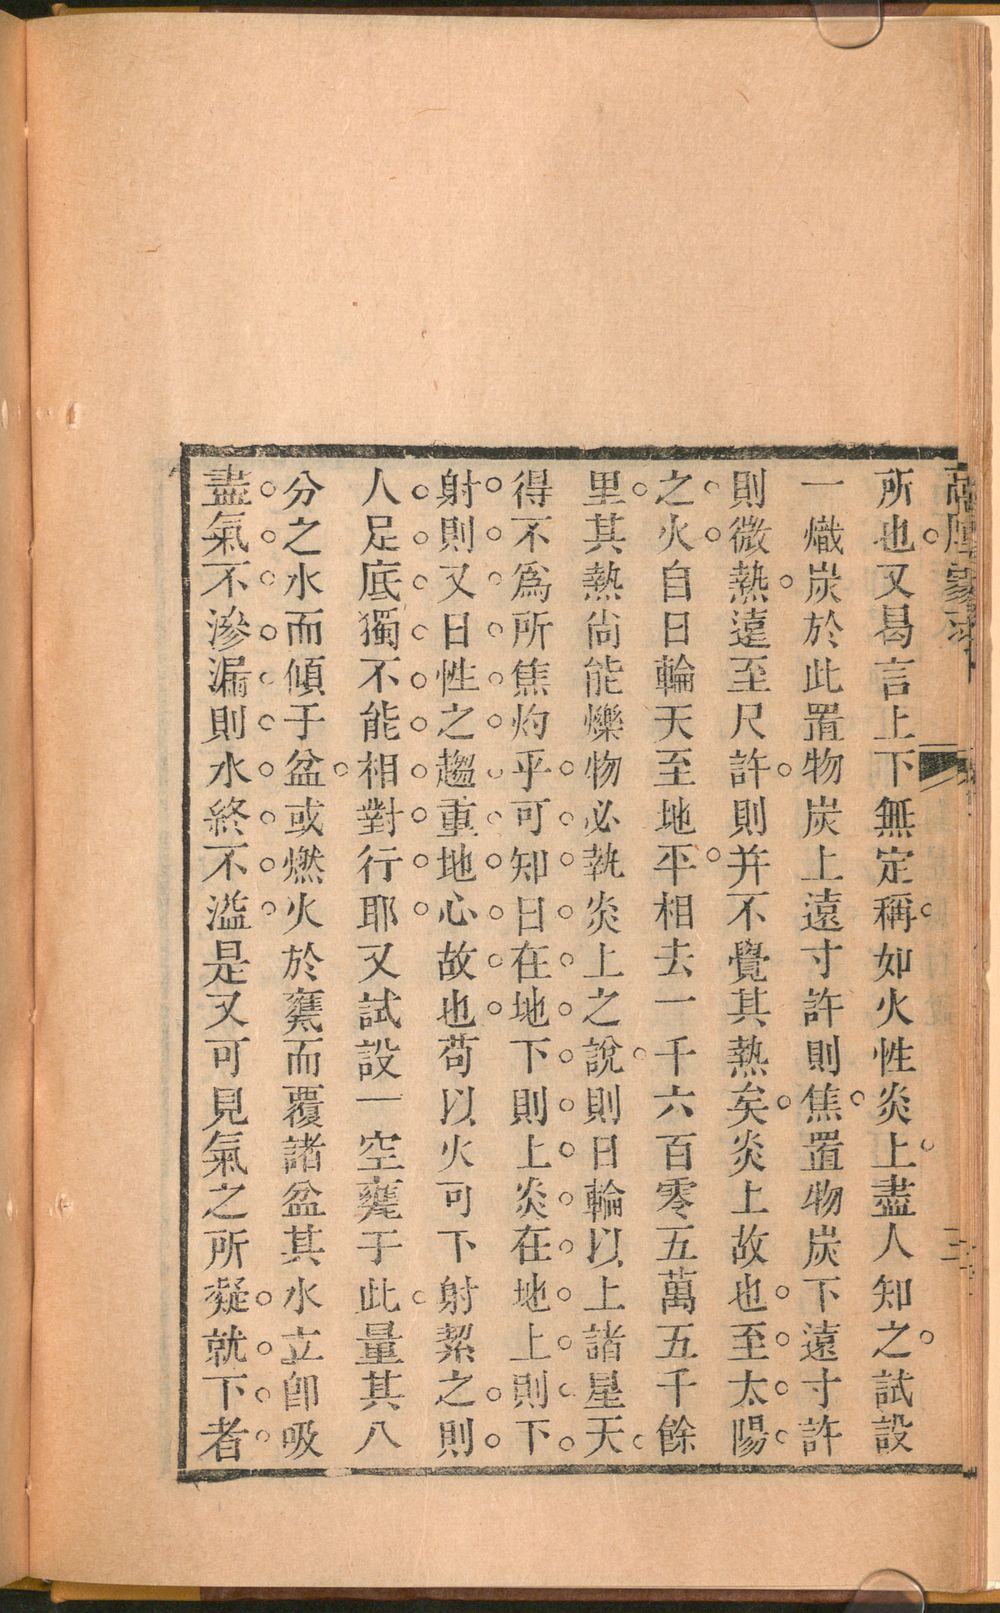 所也又曷言上下無定稱如火性炎上盡人知之試設
一熾炭於此置物炭上遠寸許則焦置物炭下遠寸許
則微熱遠至尺許則并不覺其熱矣炎上故也至太陽
之火自日輪天至地平相去一千六百零五萬五千餘
里其熱尚能爍物必執炎上之說則日輪以上諸星天
得不為所焦灼乎可知日在地下則上炎在地上則下
射則又日性之趨重地心故也苟以火可下射絜之則
人足底獨不能相對行耶又試設一空甕于此量其八
分之水而傾于盆或燃火於甕而覆諸盆其水立卽吸
盡氣不滲漏則水終不溢是又可見氣之所凝就下者